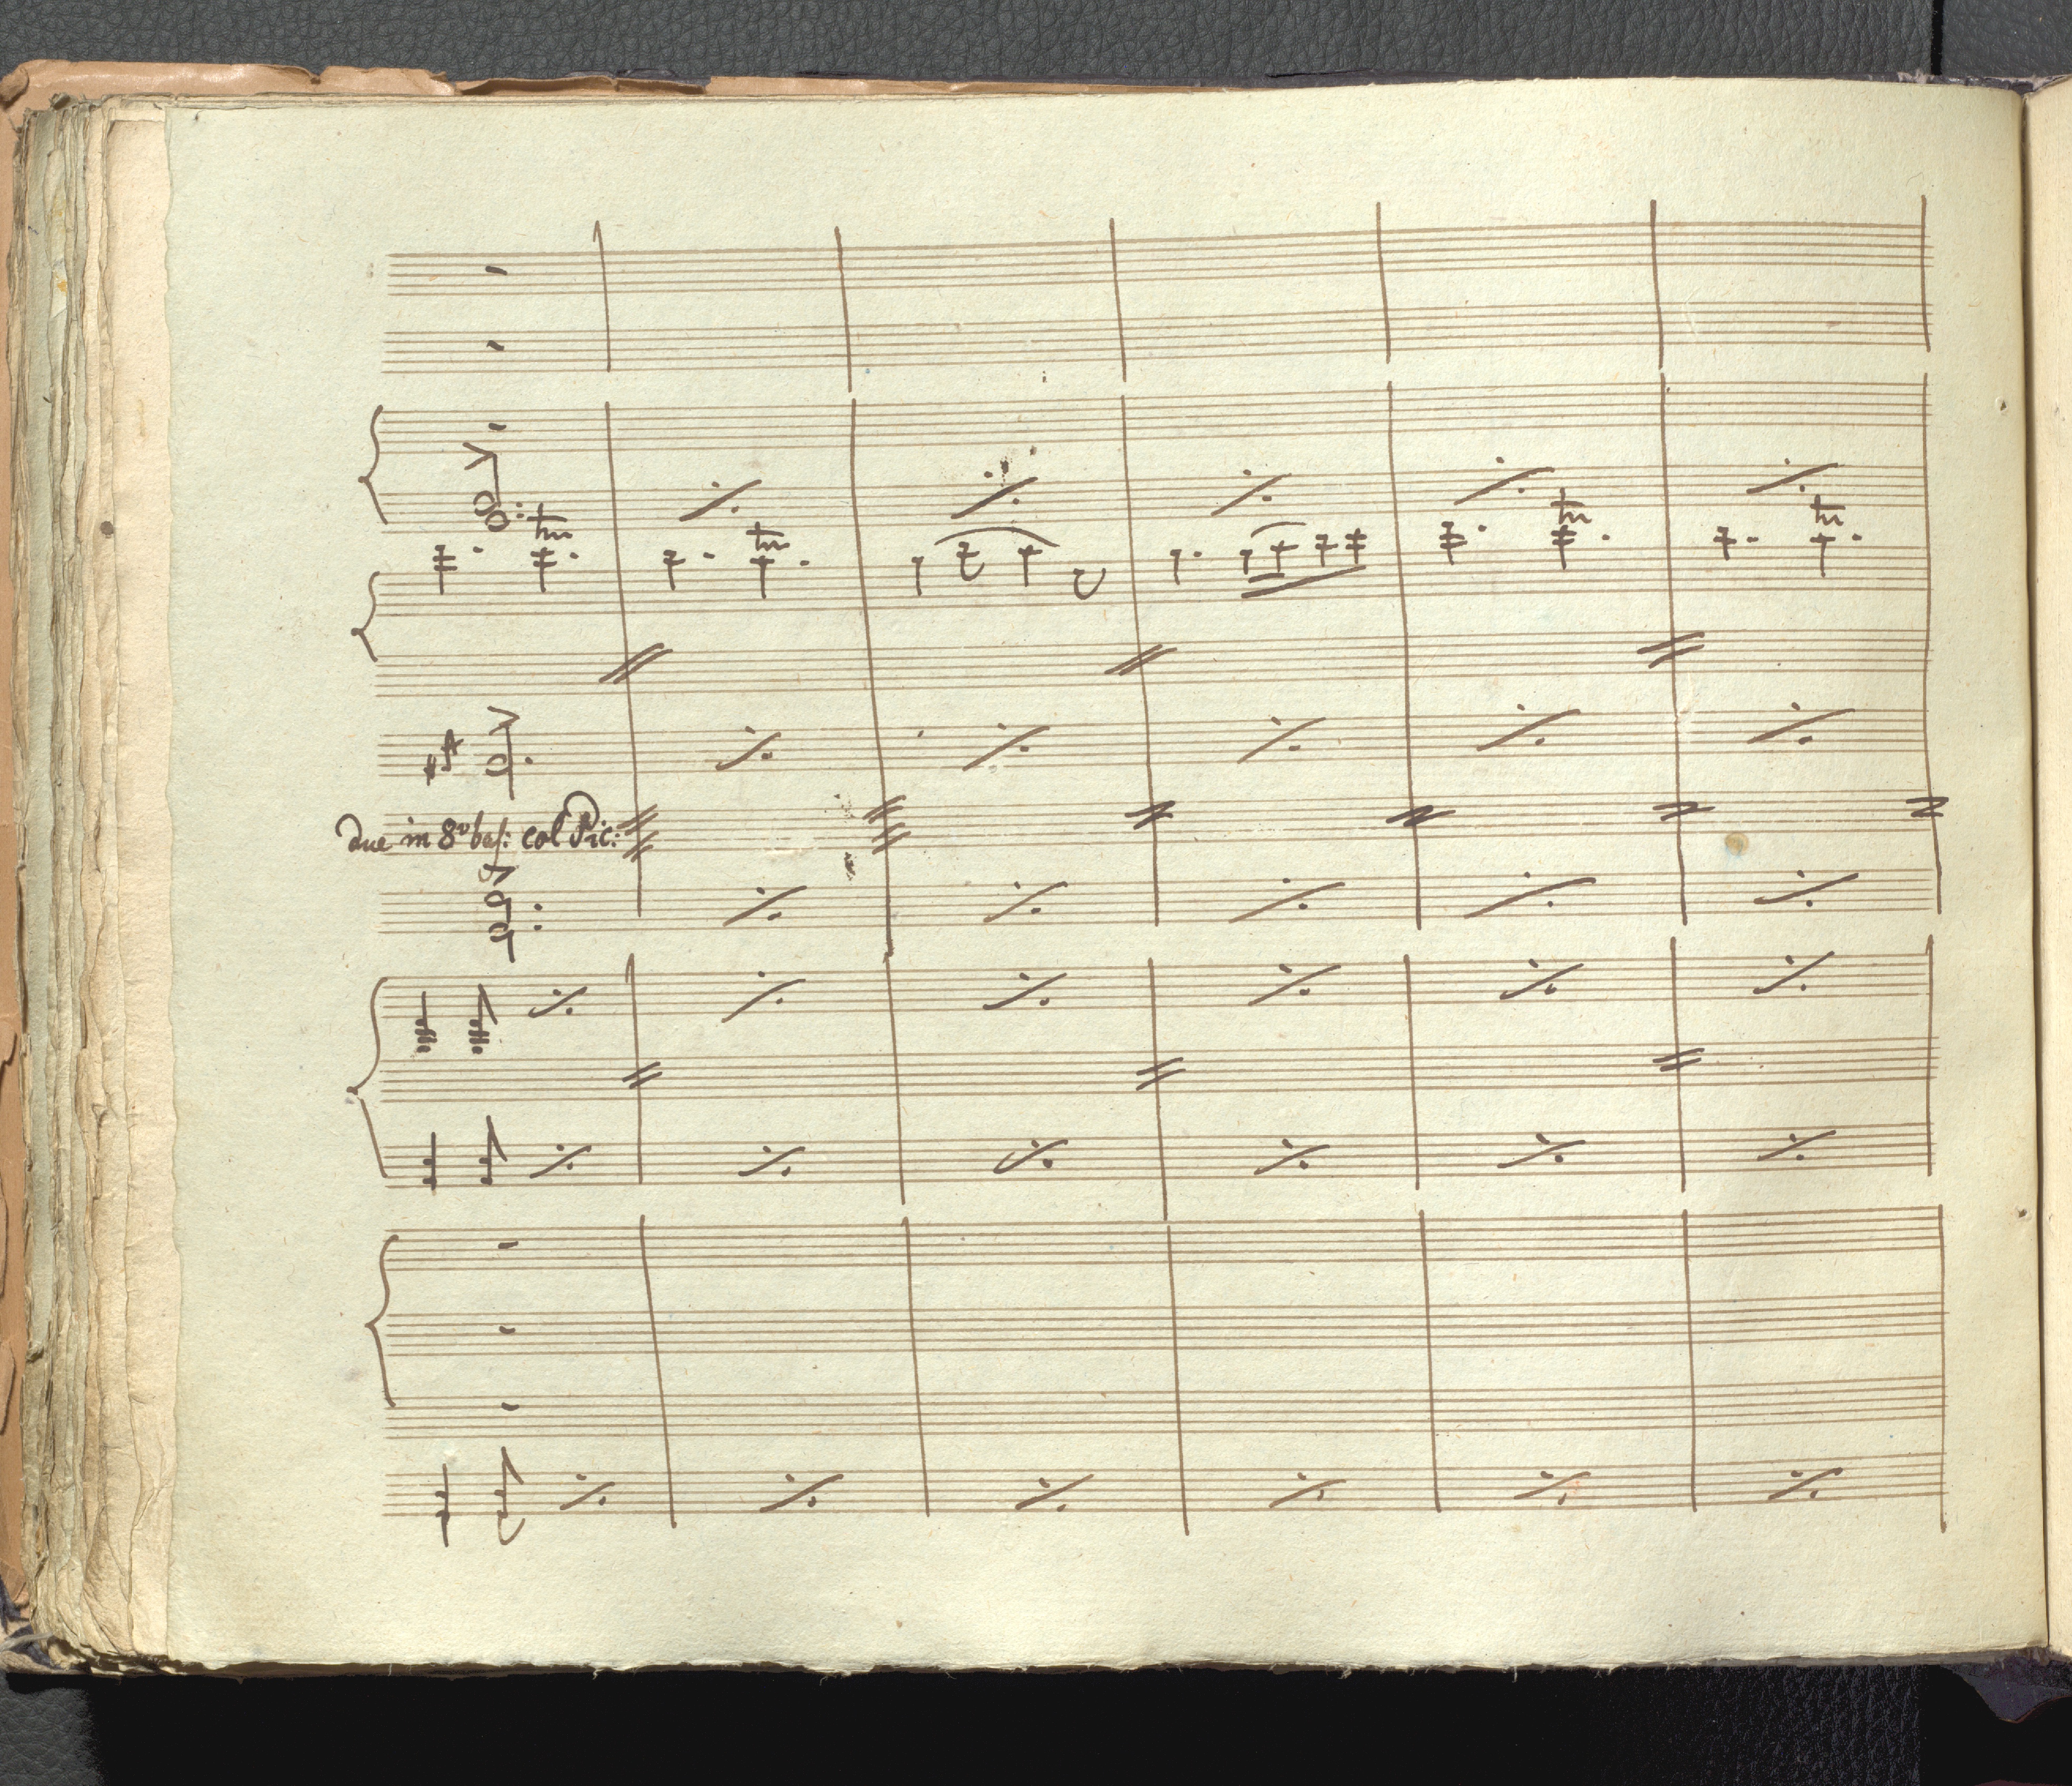 tr
tr
tr
tr
due in 8va bas: col Pic: